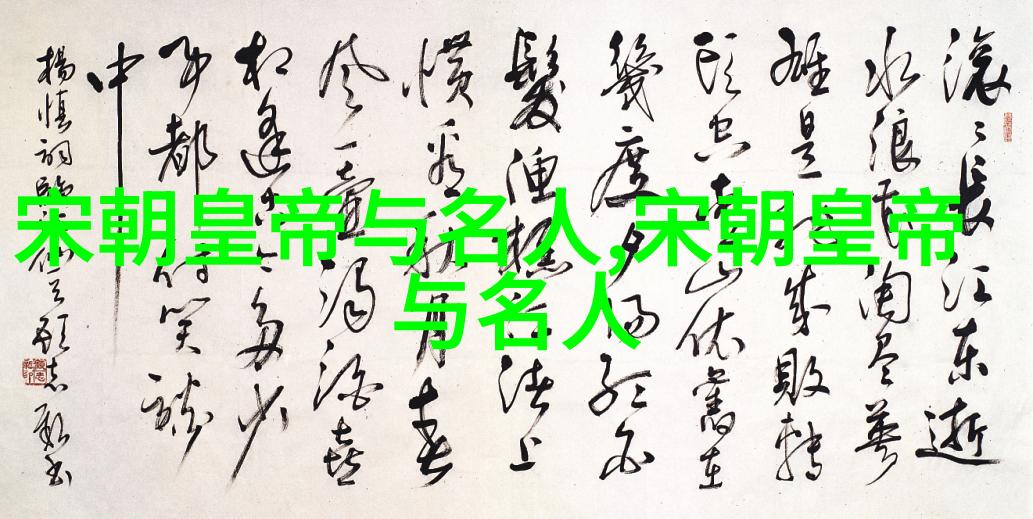 宋朝皇帝与名人,宋朝皇帝
与名人
滚〻長江东逝
水浪花淘尽英
雄是非成败轉
头空青山依舊在
幾度夕陽红白
髮渔樵江渚上
惯看秋月春
风一壶濁酒喜
相逢古今多少
事都付笑谈
中
楊慎词临江仙